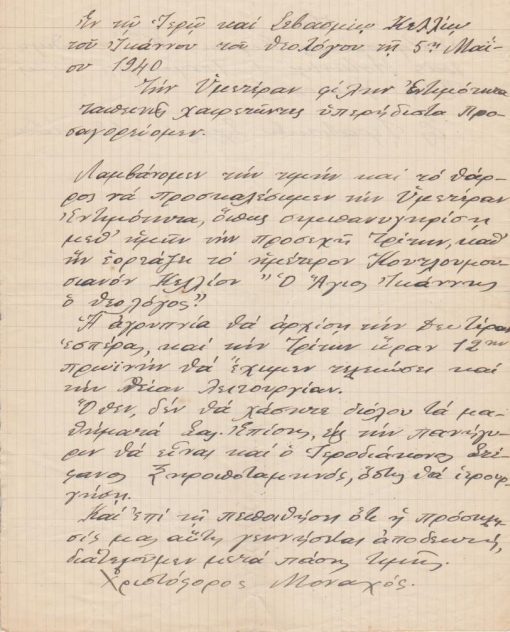 Ἐν τῷ Ἱερῷ καὶ Σεβασμίῳ Κελλίῳ
τοῦ Ἰωάννου τοῦ Θεολόγου τῇ 5ῃ Μαΐ-
ου 1940
Τὴν Ὑμετέραν φίλην Ἐντιμότητα
ταπεινῶς χαιρετῶντες ὑπερήδιστα προ-
σαγορεύομεν.
Λαμβάνομεν τὴν τιμὴν καὶ τὸ θάρ-
ρος νὰ προσκαλέσωμεν τὴν Ὑμετέραν
Ἐντιμότητα, ὅπως συμπανηγυρίσῃ
μεθ' ἡμῶν τὴν προσεχῆ Τρίτην, καθ'
ἣν ἑορτάζει τὸ ἡμέτερον Κουτλουμου-
σιανὸν Κελλίον "Ὁ Ἅγιος Ἰωάννης
ὁ Θεολόγος".
Ἡ ἀγρυπνία θὰ ἀρχίσῃ τὴν Δευτέραν
ἑσπέρας, καὶ τὴν Τρίτην ὥραν 12ην
πρωϊνὴν θὰ ἔχωμεν τελειώσει καὶ
τὴν θείαν λειτουργίαν.
Ὅθεν, δέν θὰ χάσητε διόλου τὰ μα-
θήματά Σας. Ἐπίσης, εἰς τὴν πανήγυ-
ριν θὰ εἶναι καὶ ὁ Ἱεροδιάκονος Στέ-
φανος Ξηροποταμηνός, ὅστις θὰ ἱερουρ-
γήσῃ.
Καὶ ἐπὶ τῇ πεποιθήσει ὅτι ἡ πρόσκλη-
σίς μας αὕτη γεννήσεται ἀποδεκτή,
διατελοῦμεν μετὰ πάσης τιμῆς.
Χριστόφορος Μοναχός.